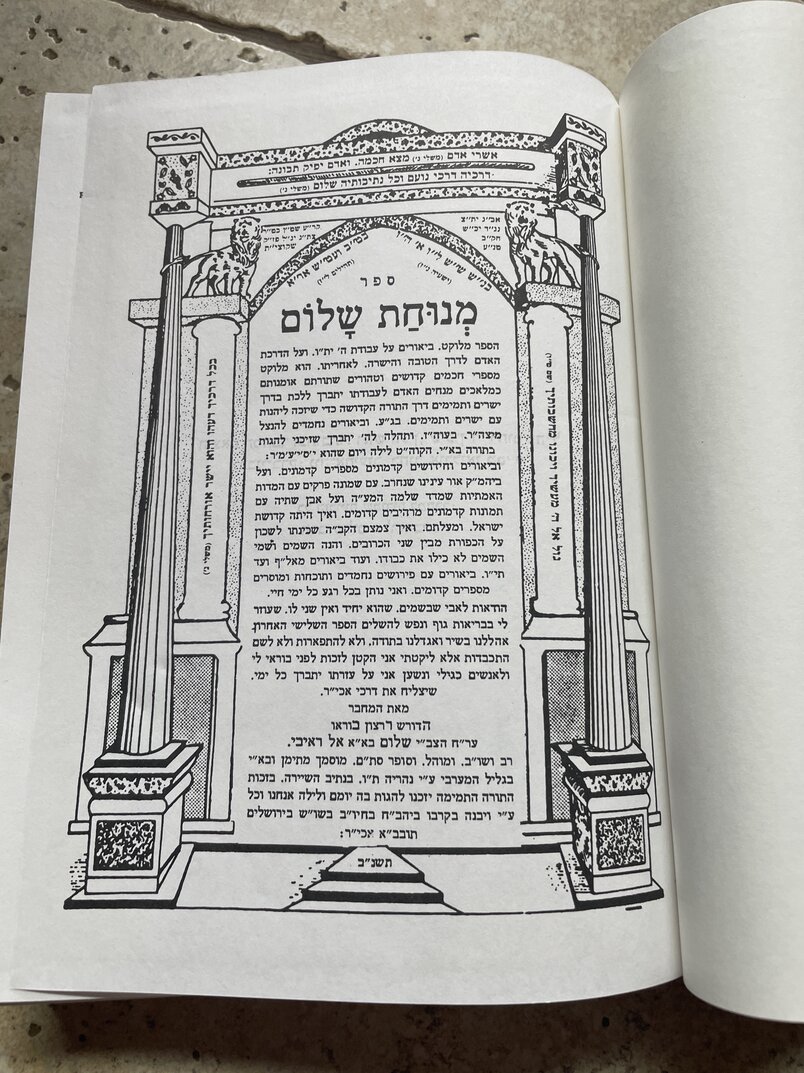 אשרי אדם (משלי ג׳) מצא חכמה. ואדם יפיק תבונה:
דרכיה דרכי נועם וכל נתיבותיה שלום (משלי ג׳)
אב״ג ית״צ
נג״ד יכ״ש
חק״ב
טנ״ע
קר״ע שט״ן
(ישעי׳ נ״ו)
(תהלים ל״ו)
ספר
מְנוּחַת שָׁלוֹם
הספר מלוקט. ביאורים על עבודת ה׳ ית״ו. ועל הדרכת
האדם לדרך הטובה והישרה. לאחריתו. הוא מלוקט
מספרי חכמים קדושים וטהורים שתורתם אומנותם
כמלאכים מנחים האדם לעבודתו יתברך ללכת בדרך
ישרים ותמימים דרך התורה הקדושה כדי שיזכה ליהנות
עם ישרים ותמימים. בג״ע. וביאורים נחמדים להנצל
מיצה״ר. בעוה״ז. ותהלה לה׳ יתברך שזיכני להגות
בתורה בא״י. הקוה״ט לילה ויום שהוא י׳ס׳י׳ע׳מ׳ר׳:
וביאורים וחידושים קדמונים מספרים קדמונים. ועל
ביהמ״ק אור עינינו שנחרב. עם שמונה פרקים עם המדות
האמתיות שמדד שלמה המע״ה ועל אבן שתיה עם
תמונות קדמונים מרהיבים קדומים. ואיך היתה קדושת
ישראל. ומעלתם. ואיך צמצם הקב״ה שכינתו לשכון
על הכפורת מבין שני הכרובים. והנה השמים ושמי
השמים לא כילו את כבודו. ועוד ביאורים מאל״ף ועד
תי״ו. ביאורים עם פירושים נחמדים ותוכחות ומוסרים
מספרים קדומים. ואני נותן בכל רגע כל ימי חיי.
הודאות לאבי שבשמים. שהוא יחיד ואין שני לו. שעוזר
לי בבריאות גוף ונפש להשלים הספר השלישי האחרון.
אהללנו בשיר ואגדלנו בתודה. ולא להתפארות ולא לשם
התכבדות אלא ליקטתי אני הקטן לזכות לפני בוראי לי
ולאנשים כגילי ונשען אני על עזרתו יתברך כל ימי.
שיצליח את דרכי אכי״ר.
מאת המחבר
הדורש רצון בוראו
ער״ח הצב״י שלום בא״א אל ראיבי.
רב ושו״ב. ומוהל. וסופר סת״ם. מוסמך מתימן ובא״י
בגליל המערבי ע״י נהריה ת״ו. בנתיב השיירה. בזכות
התורה התמימה יזכנו להגות בה יומם ולילה אנחנו וכל
ע״י ויבנה בקרבו ביהב״ח בחיו״ב בשו״ש בירושלים
תובב״א אכי״ר:
תשנ״ב
בכל דרכיך דעהו והוא יישר אורחותיך (משלי ג׳)
גול אל ה׳ מעשיך ויכונו מחשבותיך